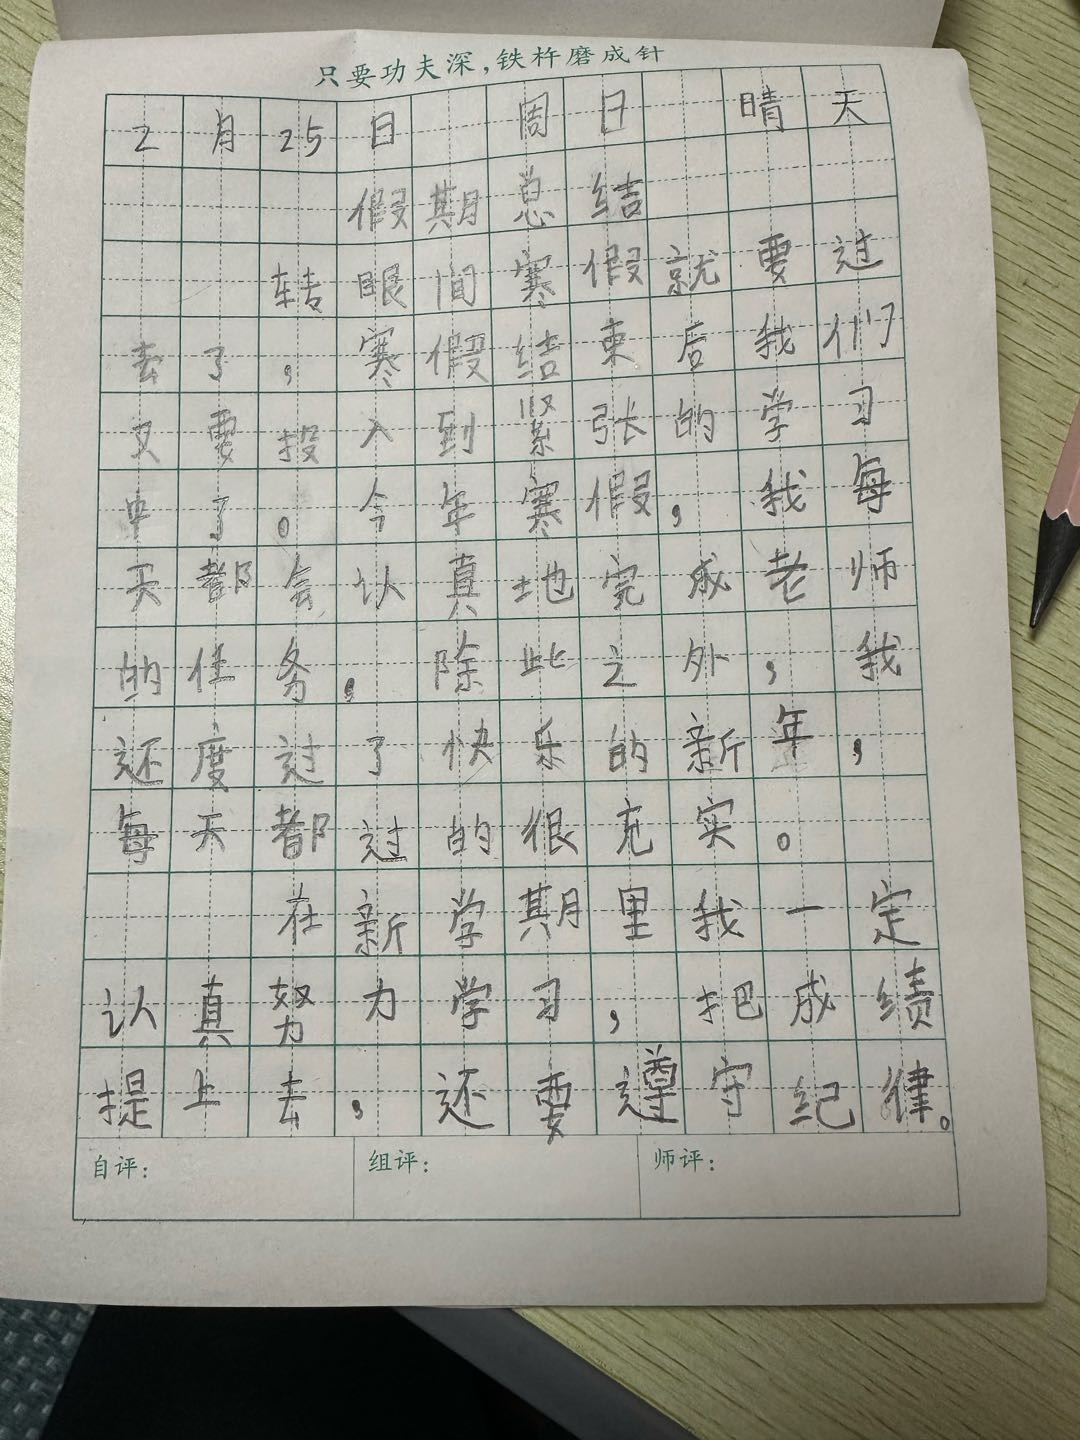 只要功夫深，铁杵磨成针
2月25日 周日 晴天
假期总结
转眼间寒假就要过
去了，寒假结束后我们
又要投入到紧张的学习
中了。今年寒假，我每
天都会认真地完成老师
的任务，除此之外，我
还度过了快乐的新年，
每天都过的很充实。
在新学期里我一定
认真努力学习，把成绩
提上去，还要遵守纪律。
自评： 组评： 师评：